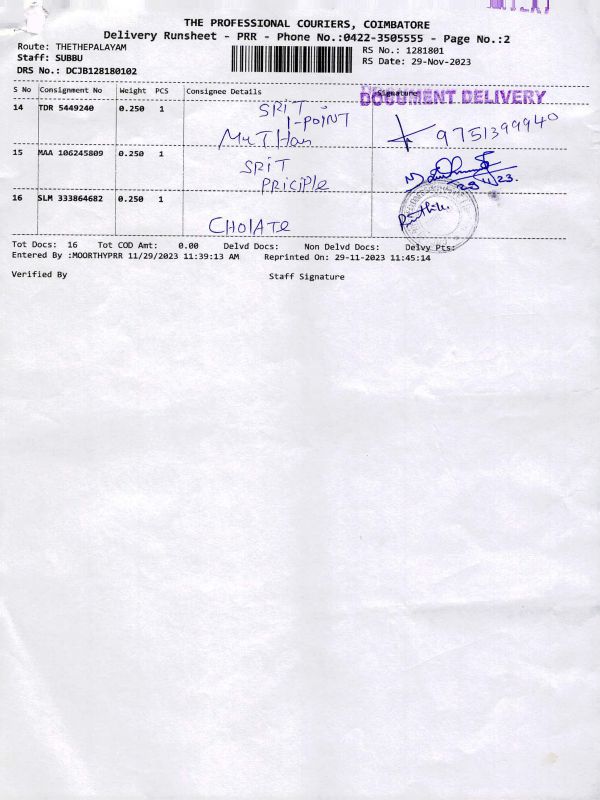 THE PROFESSIONAL COURIERS, COIMBATORE
Delivery Runsheet - PRR - Phone No.:0422-3505555 - Page No.:2
Route: THETHEPALAYAM
RS No.: 1281801
Staff: SUBBU
RS Date: 29-Nov-2023
DRS No.: DCJB128180102
S No Consignment No Weight PCS Consignee Details Signature
DOCUMENT DELIVERY
14 TDR 5449240 0.250 1 SRIT
1-POINT
9751399940
15 MAA 106245809 0.250 1 SRIT
PRICIPLE
16 SLM 333864682 0.250 1
CHOLATE
Tot Docs: 16 Tot COD Amt: 0.00 Delvd Docs: Non Delvd Docs: Delvy Pts:
Entered By :MOORTHYPRR 11/29/2023 11:39:13 AM Reprinted On: 29-11-2023 11:45:14
Verified By Staff Signature